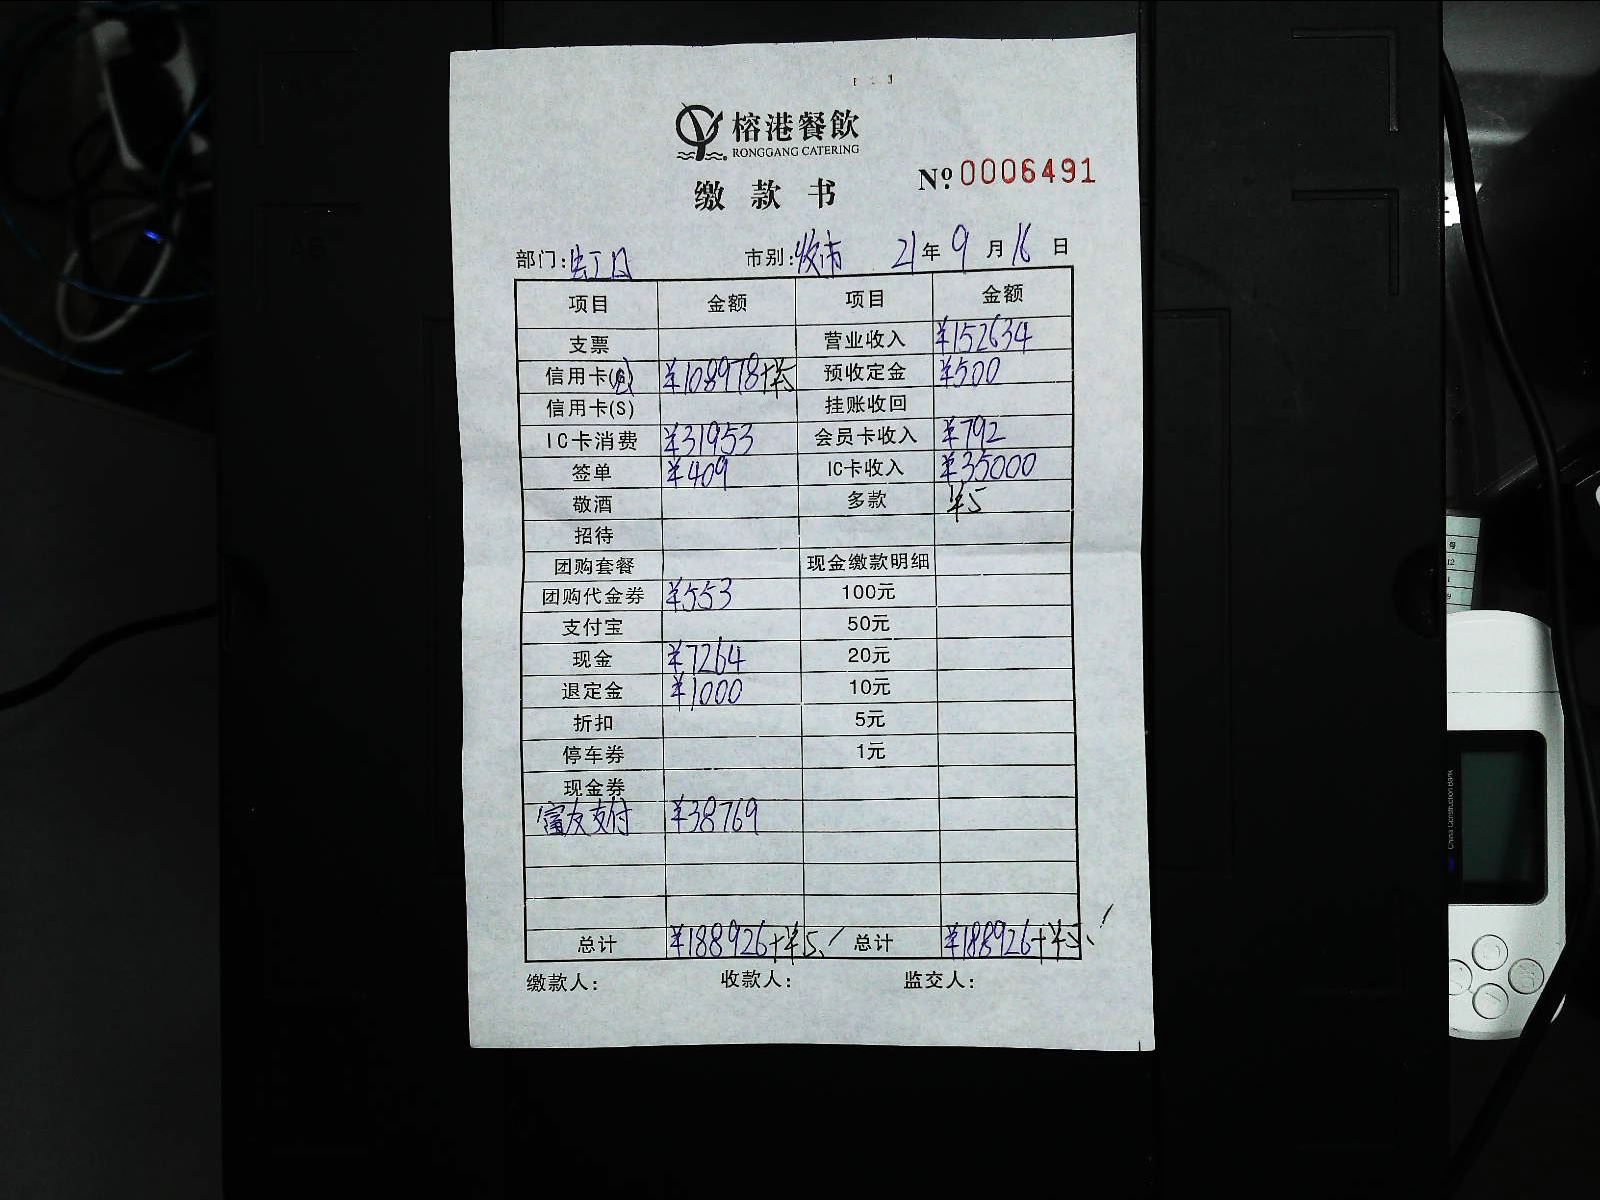 榕港餐飲
RONGGANG CATERING
缴款书
№ 0006491
部门: 市别:收市 21年9月16日
项目 金额 项目 金额
支票 营业收入 ¥152634
信用卡 ¥108978+¥5 预收定金 ¥500
信用卡(S) 挂账收回
IC卡消费 ¥31953 会员卡收入 ¥792
签单 ¥409 IC卡收入 ¥35000
敬酒 多款 ¥5
招待
团购套餐 现金缴款明细
团购代金券 ¥553 100元
支付宝 50元
现金 ¥7264 20元
退定金 ¥1000 10元
折扣 5元
停车券 1元
现金券
富友支付 ¥38769
总计 ¥188926+¥5 总计 ¥188926+¥5
缴款人: 收款人: 监交人:
China Construction Bank